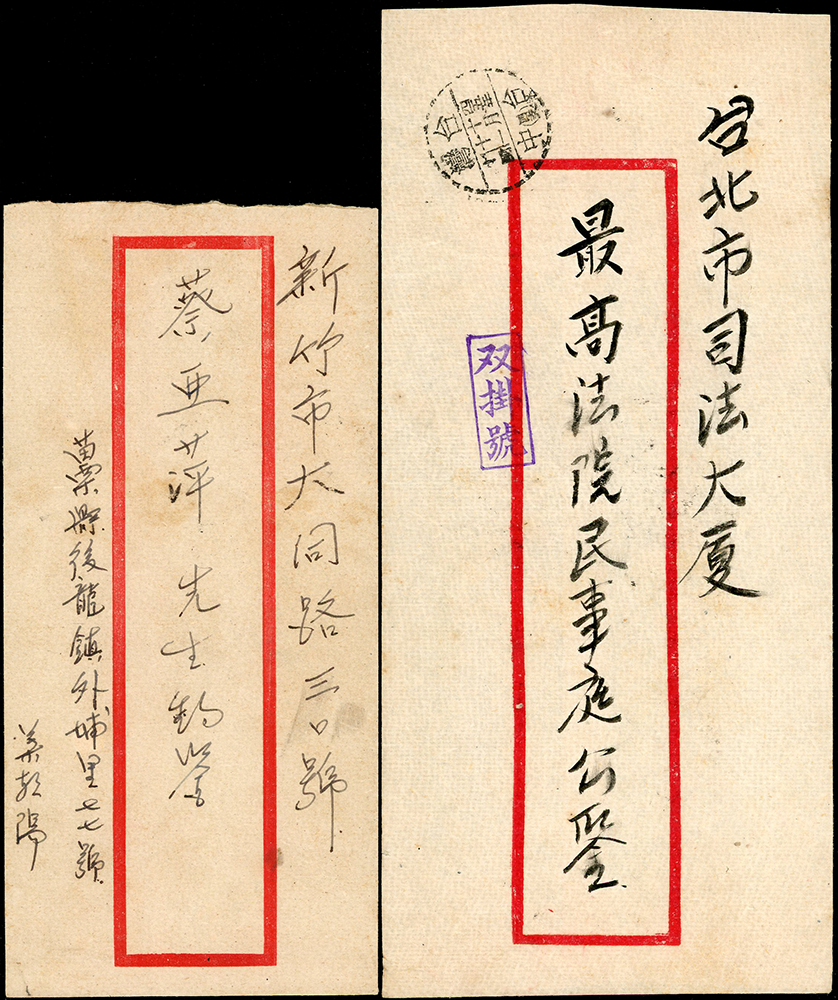 台北市司法大厦
最高法院民事庭公鑒
双掛號
新竹市大同路三 號
蔡亜萍先生鈞鑒
苗栗縣後龍鎮外埔里七七號
朝陽